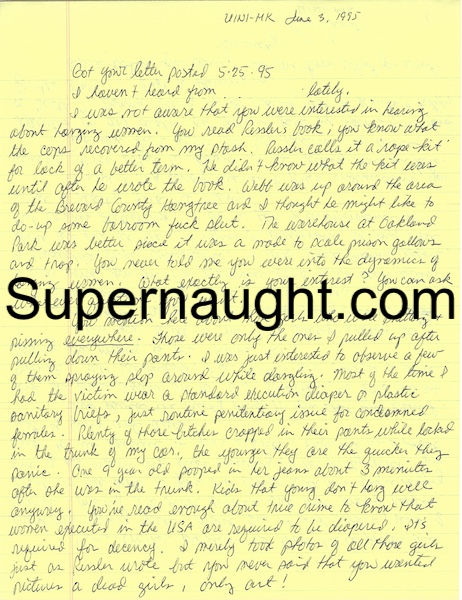 UINI-MK June 3, 1995
Got your letter posted 5-25-95
I haven't heard from lately.
I was not aware that you were interested in hearing
about hanging women. You read Ressler's book; you know what
the cops recovered from my stash. Ressler calls it a 'rape-kit'
for lack of a better term. He didn't know what the kit was
until after he wrote the book. Webb was up around the area
of the Brevard County Hangtree and I thought he might like to
do-up some barroom fuck slut. The warehouse at Oakland
Park was better since it was a made to scale prison gallows
and trap. You never told me you were into the dynamics of
women. What exactly is your interest? You can ask
Supernaught.com
pissing everywhere. Those were only the ones I pulled up after
pulling down their pants. I was just interested to observe a few
of them spraying slop around while dangling. Most of the time I
had the victim wear a standard execution diaper or plastic
sanitary briefs, just routine penitentiary issue for condemned
females.
[lines omitted]
You've read enough about true crime to know that
women executed in the USA are required to be diapered. It's
required for decency. I merely took photos of all those girls
just as Ressler wrote but you never said that you wanted
pictures a dead girls, only art!